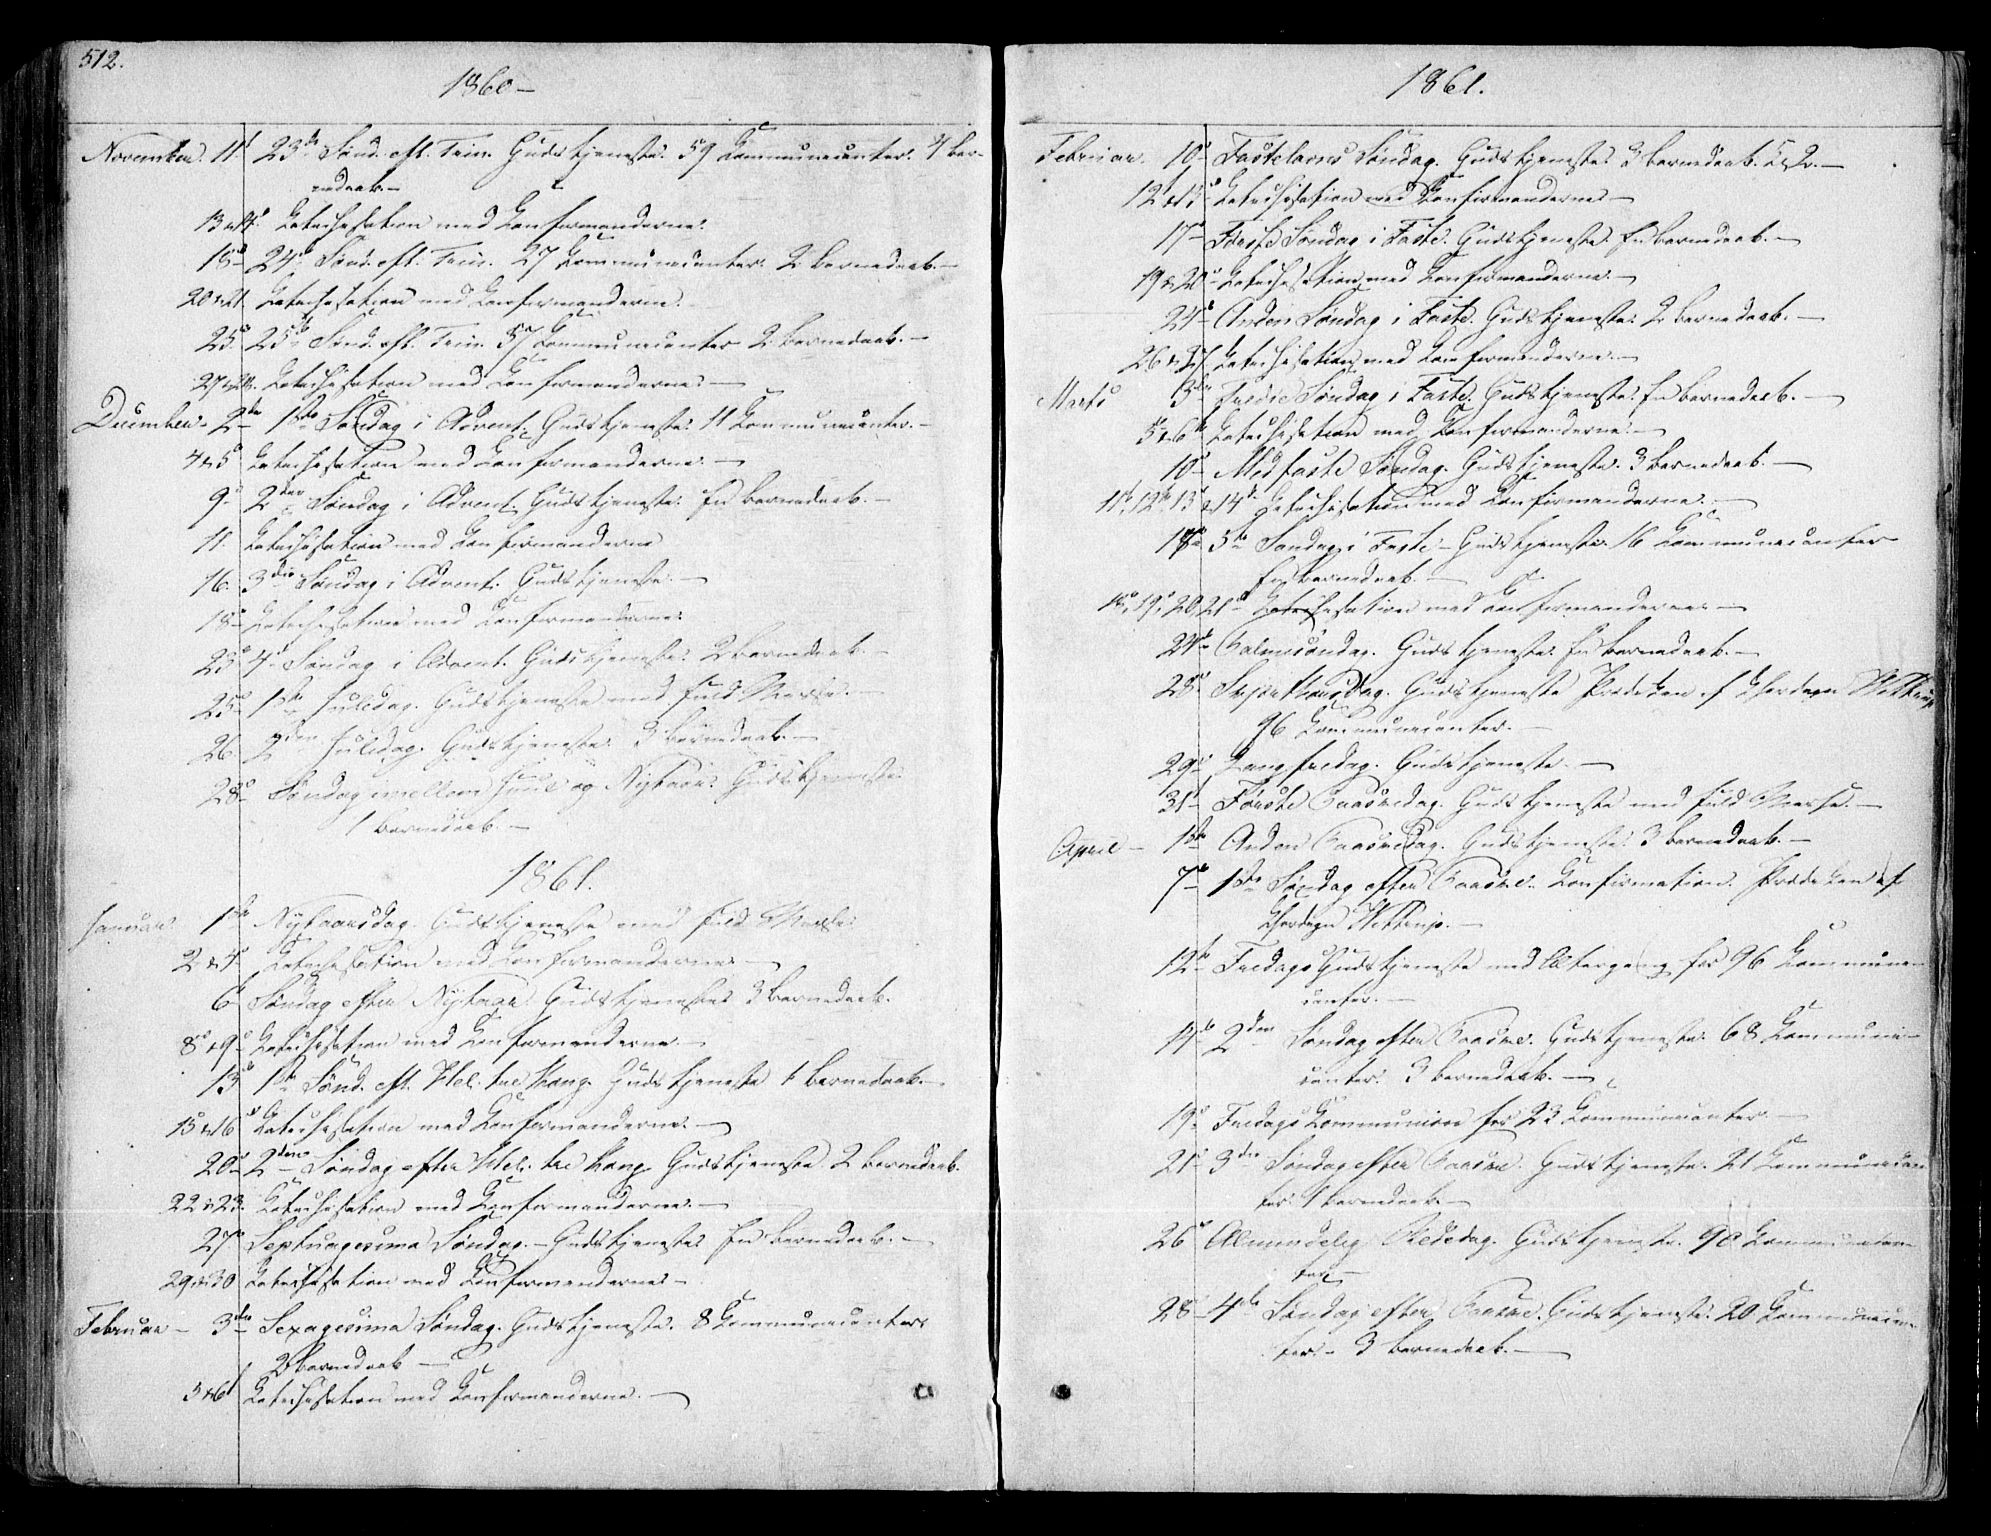 512.
1860 –
November. 11te 23de Sønd. eft. Trin. Gudstjeneste. 59 Kommunicanter. 4 Bar-
nedaab. –
13 & 14d. Katechisation med Konfirmanderne.
18d 24d Sønd. eft. Trin. 27 Kommunicanter. 2 Barnedaab. –
20 & 21. Katechisation med Konfirmanderne.
25d 25d Sønd. eft. Trin. 57 Kommunicanter 2 Barnedaab. –
27 & 28. Katechisation med Konfirmanderne. –
December – 2den 1ste Søndag i Advent. Gudstjeneste. 11 Kommunicanter. –
4 & 5 Katechisation med Konfirmanderne. –
9. 2den Søndag i Advent. Gudstjeneste. En Barnedaab. –
11. Katechisation med Konfirmanderne
16. 3die Søndag i Advent. Gudstjeneste. –
18 – Katechisation med Konfirmanderne.
23d 4d Søndag i Advent. Gudstjeneste. 2 Barnedaab. –
25d 1ste Juledag. Gudstjeneste med fuld Messe. –
26. 2den Juledag. Gudstjeneste. 3 Barnedaab. –
28d Søndag mellem Juul og Nytaar. Gudstjeneste.
1 Barnedaab. –
1861.
Januar. 1ste Nytaarsdag. Gudstjeneste med fuld Messe.
2 & 4. Katechisation med Konfirmanderne –
6 Søndag efter Nytaar. Gudstjeneste 3 Barnedaab.
8d & 9d Katechisation med Konfirmanderne. –
13d 1ste Sønd. eft. Hel. tre Kong. Gudstjeneste 1 Barnedaab. –
15 & 16d Katechisation med Konfirmanderne. –
20d 2den Søndag efter Hel. tre Kong Gudstjeneste 2 Barnedaab.
22 & 23. Katechisation med Konfirmanderne. –
27d Septuagesima Søndag. – Gudstjeneste En Barnedaab. –
29 & 30 Katechisation med Konfirmanderne –
Februar – 3die Sexagesima Søndag. Gudstjeneste. 8 Kommunicanter
2 Barnedaab –
5 & 6t Katechisation med Konfirmanderne. –
1861.
Februar. 10d Fastelavns Søndag. Gudstjeneste. 3 Barnedaab.
12 & 13d Katechisation med Konfirmanderne –
17d Første Søndag i Faste. Gudstjeneste. En Barnedaab. –
19 & 20d Katechisation med Konfirmanderne. –
24d Anden Søndag i Faste. Gudstjeneste. 2 Barnedaab. –
26 & 27 Katechisation med Konfirmanderne. –
Marts 3die Tredie Søndag i Faste. Gudstjeneste. En Barnedaab. –
5 & 6te Katechisation med Konfirmanderne. –
10d Midfaste Søndag. Gudstjeneste. 3 Barnedaab. –
11te 12te 13 & 14de Katechisation med Konfirmanderne. –
5te Søndag i Faste – Gudstjeneste. 16 Kommunicanter
En Barnedaab. –
18d, 19d, 20, 21d Katechisation med Konfirmanderne –
24d Palmesøndag. Gudstjeneste. En Barnedaab. –
Skjærthorsdag. Gudstjeneste Prædiken af Wittrup
96 Kommunicanter. –
29d Langfredag. Gudstjeneste. –
31d Første Paaskedag. Gudstjeneste med fuld Messe. –
April – 1ste Anden Paaskedag. Gudstjeneste. 3 Barnedaab. –
7d 1ste Søndag efter Paaske. Konfirmation. Prædiken af
Wittrup. –
12te Fredags Gudstjeneste med Altergang for 96 Kommuni-
canter. –
14d 2den Søndag efter Paaske. Gudstjeneste. 68 Kommuni-
canter. 3 Barnedaab. –
19d Fredags Kommunion for 23 Kommunicanter. –
21d 3die Søndag efter Paaske. Gudstjeneste. 21 Kommunican
ter. 1 Barnedaab. –
26d Almindelig Bededag. Gudstjeneste. 90 Kommunican-
ter. –
28d 4de Søndag efter Paaske. Gudstjeneste. 20 Kommunican-
ter. – 3 Barnedaab. –